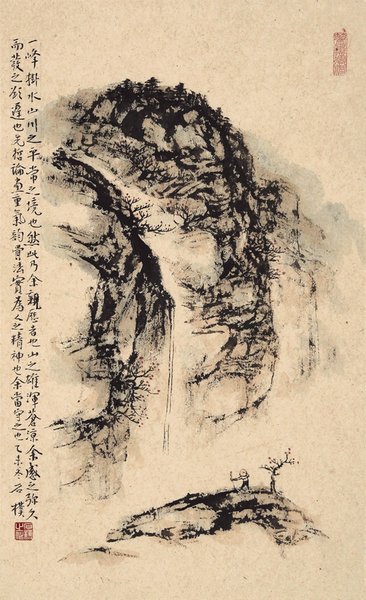 一峰掛水山川之平常之境也然此乃余親歷者也山之雄渾蒼涼余感之弥久
而發之遲也先哲論畫重氣韵貴法實為人之精神也余當守之也乙未冬石樸